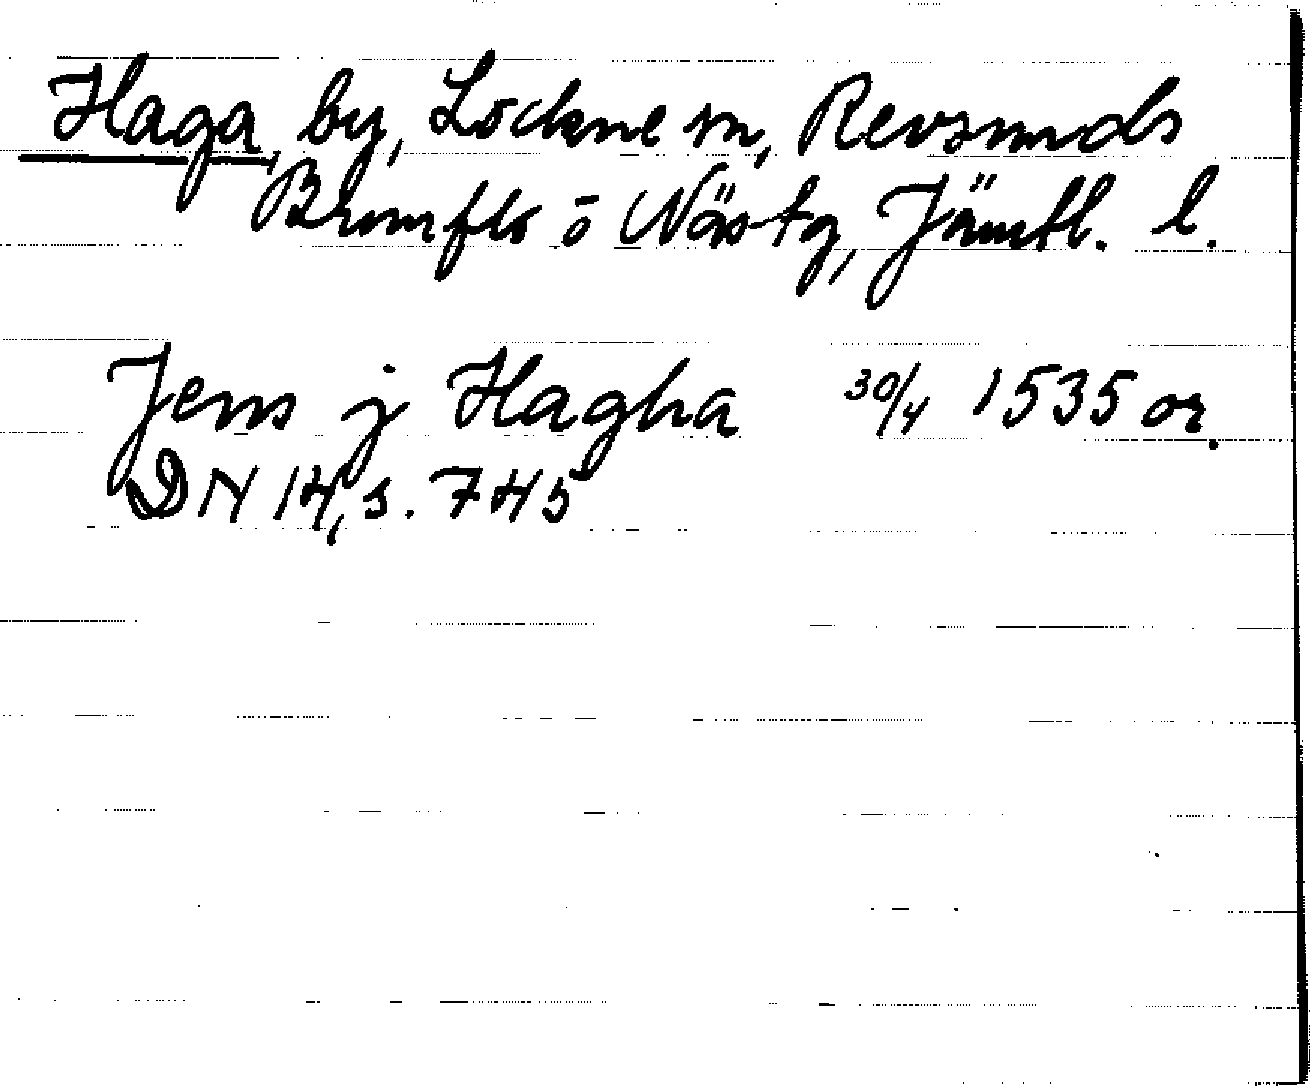 Haga, by, Lockne sn, Revsunds
Brunflo o Näs tg, Jämtl. l.
Jens j Hagha 30/4 1535 or.
DN 14, s. 745